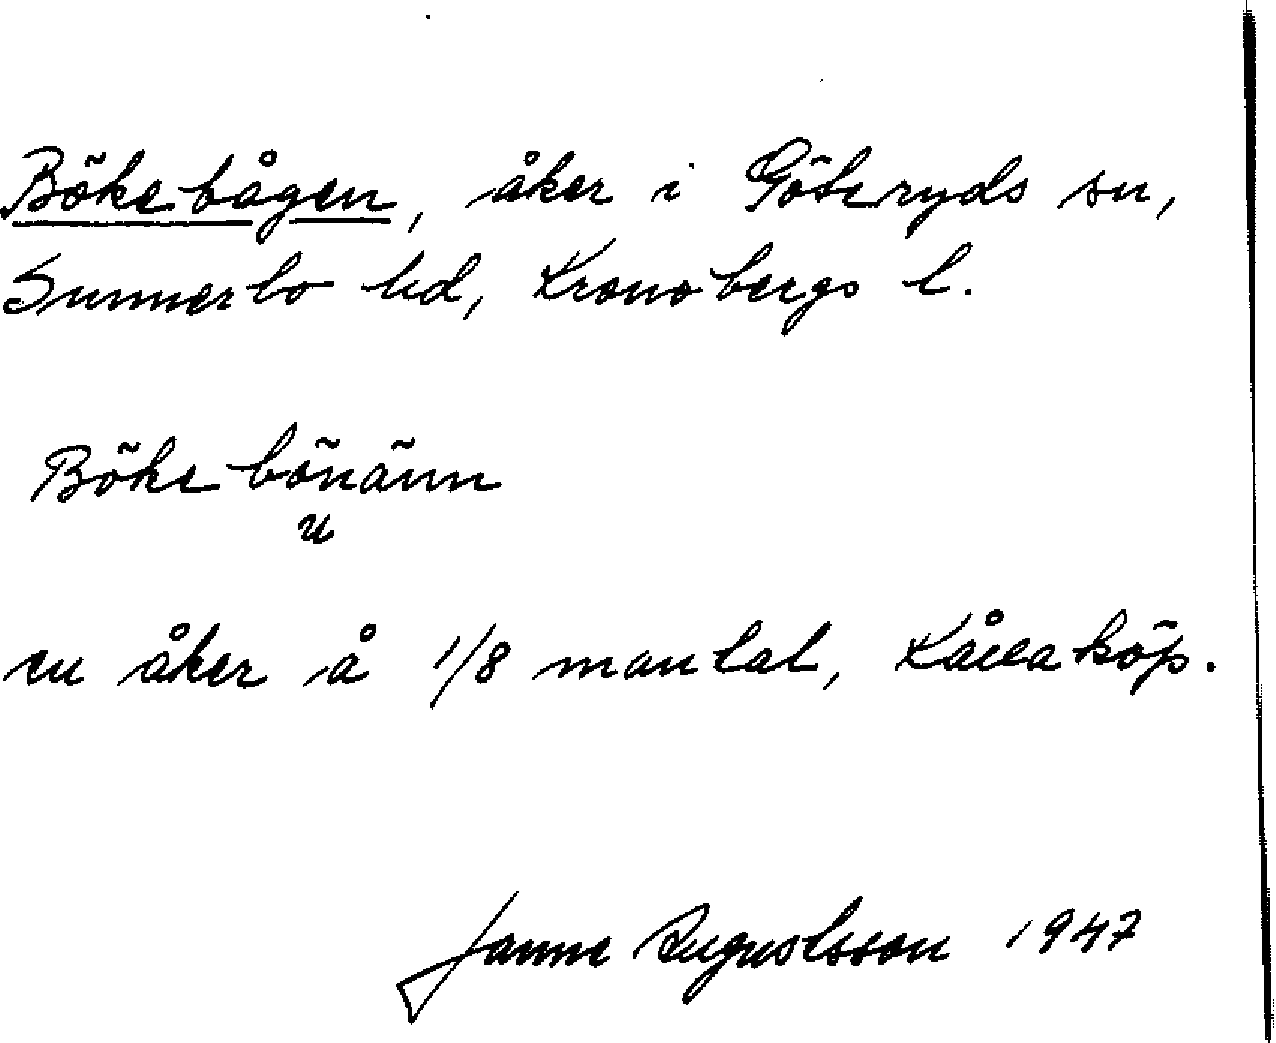 Bökebågen, åker i Göteryds sn,
Sunnerbo hd, Kronobergs l.
Bökebönänn
u
en åker å 1/8 mantal, Kållaköp.
Janne Augustsson 1947